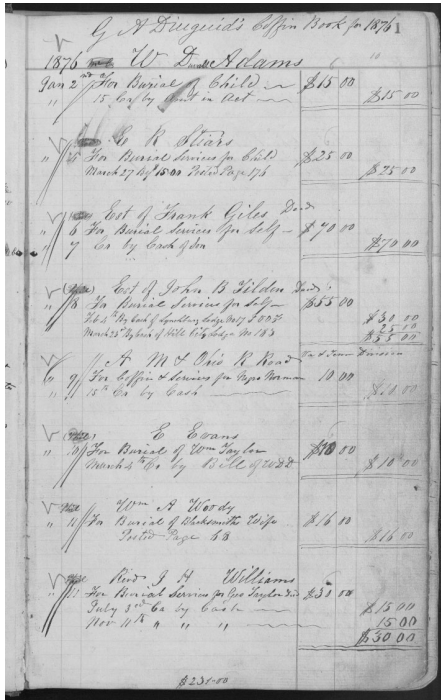 G A Diuguid's Coffin Book for 1876 1
1876 W D Adams
Jan 2nd For Burial of Child $15.00
" 15 Cr by Amt in Act $15.00
E R Stiars
" 5 For Burial Services for Child $25.00
March 27 By 15.00 Posted Page 176 $25.00
Est of Frank Giles Decd
" 6 For Burial Services for Self $70.00
" 7 Cr by Cash of Son $70.00
Est of John B Tilden Decd
" 8 For Burial Services for Self $55.00
Feb 4th By Cash of Lynchburg Lodge $30.00
March 25th By of Hill City Lodge No 183 25.00
$55.00
A M & Ohio R Road Va & Tenn Division
" 9 For Coffin & Services for Norman 10.00
" 15th Cr by Cash $10.00
E Evans
" 10 For Burial of Wm Taylor $10.00
March 4th Cr by Bill of W D D $10.00
Wm A Woody
" 11 For Burial of Blacksmiths Wife $16.00
Posted Page 68 $16.00
Revd J H Williams
" 11 For Burial Services for Geo Taylor Decd $30.00
July 3rd Ca by Cash $15.00
Nov 11th " " " 15.00
$30.00
$231.00